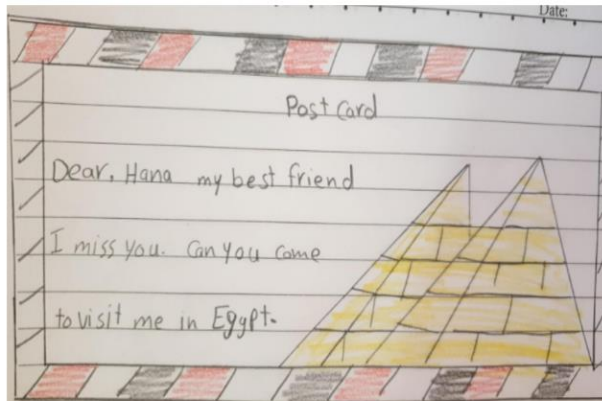 Date:
Post Card
Dear, Hana my best friend
I miss you. Can you come
to visit me in Egypt.